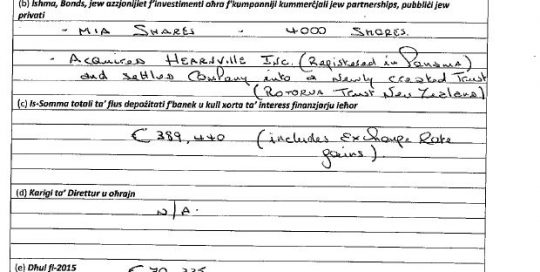 (b) Ishma, Bonds, jew azzjonijiet f'investimenti oħra f'kumpanniji kummerċjali jew partnerships, pubbliċi jew
privati
- MIA SHARES - 4000 SHARES.
- Acquired HEARNVILLE INC. (Registered in Panama)
and settled Company into a newly created Trust
(ROTORUA TRUST New Zealand)
(c) Is-Somma totali ta' flus depożitati f'banek u kull xorta ta' interess finanzjarju ieħor
€ 389,440 (includes Exchange Rate
gains).
(d) Karigi ta' Direttur u oħrajn
N/A.
(e) Dħul fl-2015